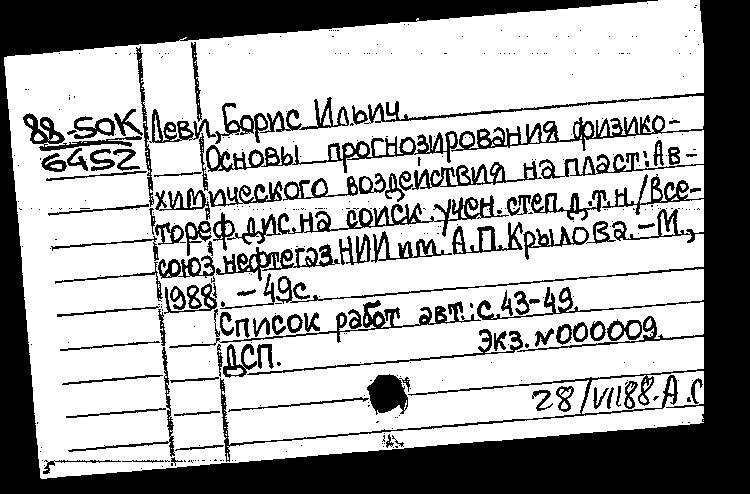 88-50К Леви, Борис Ильич.
6452 Основы прогнозирования физико-
химического воздействия на пласт: Ав-
тореф. дис. на соиск. учен. степ. д.т.н. / Все-
союз. нефтегаз. НИИ им. А.П. Крылова. — М.,
1988. — 49с.
Список работ авт.: с. 43-49.
ДСП. Экз. №000009.
28/VII88. А.С